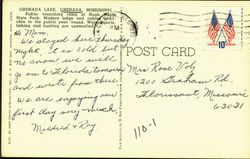 GRENADA LAKE, GRENADA, MISSISSIPPI
Public launching ramp at Hugh White
State Park. Modern lodge and cabins avail-
able to the public year 'round. Water sports,
fishing and hunting are unexcelled.
Hi Mom,
We stayed here Thursday
night. It is cold but
no snow, we will
go on to Florida tomorrow
and wrote from there
we are enjoying our
first day very much
Mildred & Roy
PM
10¢
POST CARD
Mrs Rose Volz
1200 Graham Rd.
Florissant, Missouri
63031
110-1